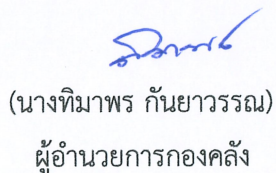 (นางทิมาพร กันยาวรรณ)
ผู้อำนวยการกองคลัง